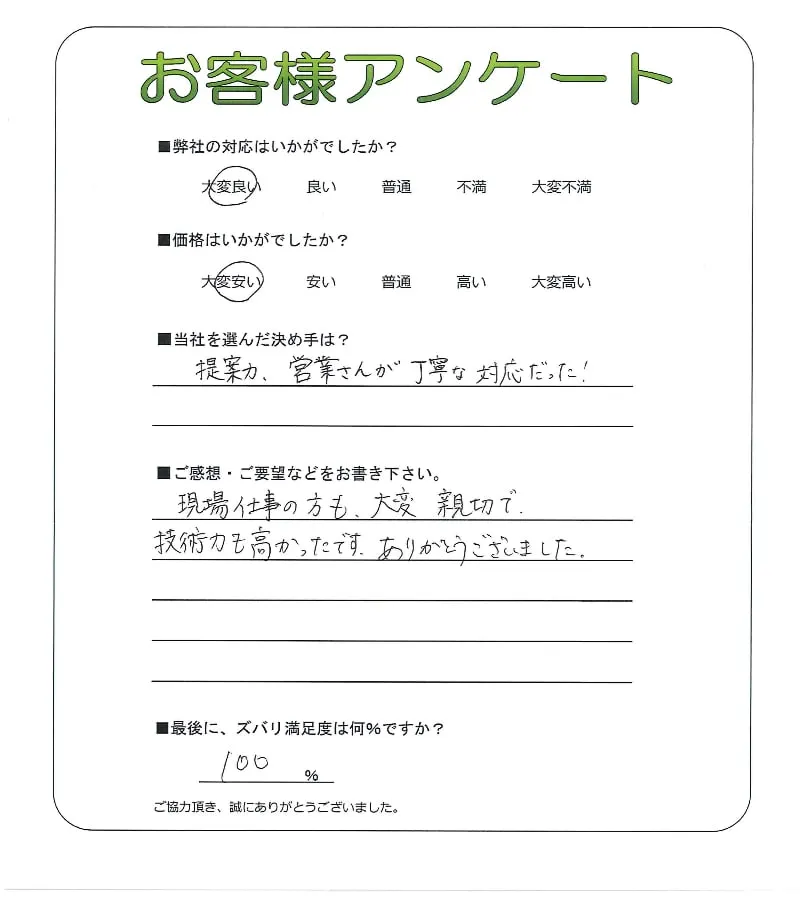 お客様アンケート
■弊社の対応はいかがでしたか？
大変良い 良い 普通 不満 大変不満
■価格はいかがでしたか？
大変安い 安い 普通 高い 大変高い
■当社を選んだ決め手は？
提案力、営業さんが丁寧な対応だった！
■ご感想・ご要望などをお書き下さい。
現場仕事の方も、大変親切で、
技術力も高かったです。ありがとうございました。
■最後に、ズバリ満足度は何%ですか？
100 %
ご協力頂き、誠にありがとうございました。